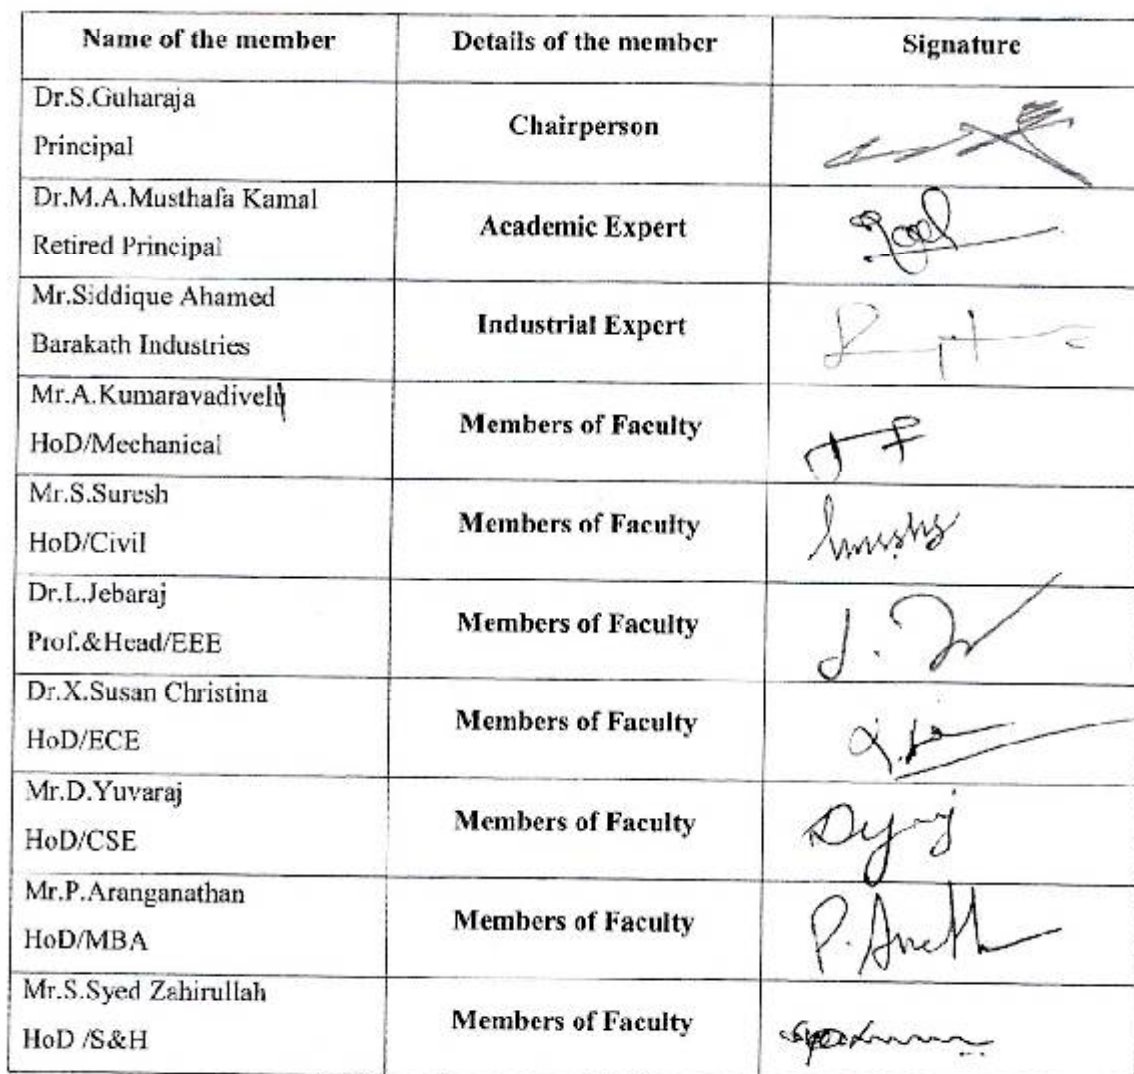 Name of the member Details of the member Signature
Dr.S.Guharaja
Principal
Chairperson
Dr.M.A.Musthafa Kamal
Retired Principal
Academic Expert
Mr.Siddique Ahamed
Barakath Industries
Industrial Expert
Mr.A.Kumaravadivelu
HoD/Mechanical
Members of Faculty
Mr.S.Suresh
HoD/Civil
Members of Faculty
Dr.L.Jebaraj
Prof.&Head/EEE
Members of Faculty
Dr.X.Susan Christina
HoD/ECE
Members of Faculty
Mr.D.Yuvaraj
HoD/CSE
Members of Faculty
Mr.P.Aranganathan
HoD/MBA
Members of Faculty
Mr.S.Syed Zahirullah
HoD /S&H
Members of Faculty